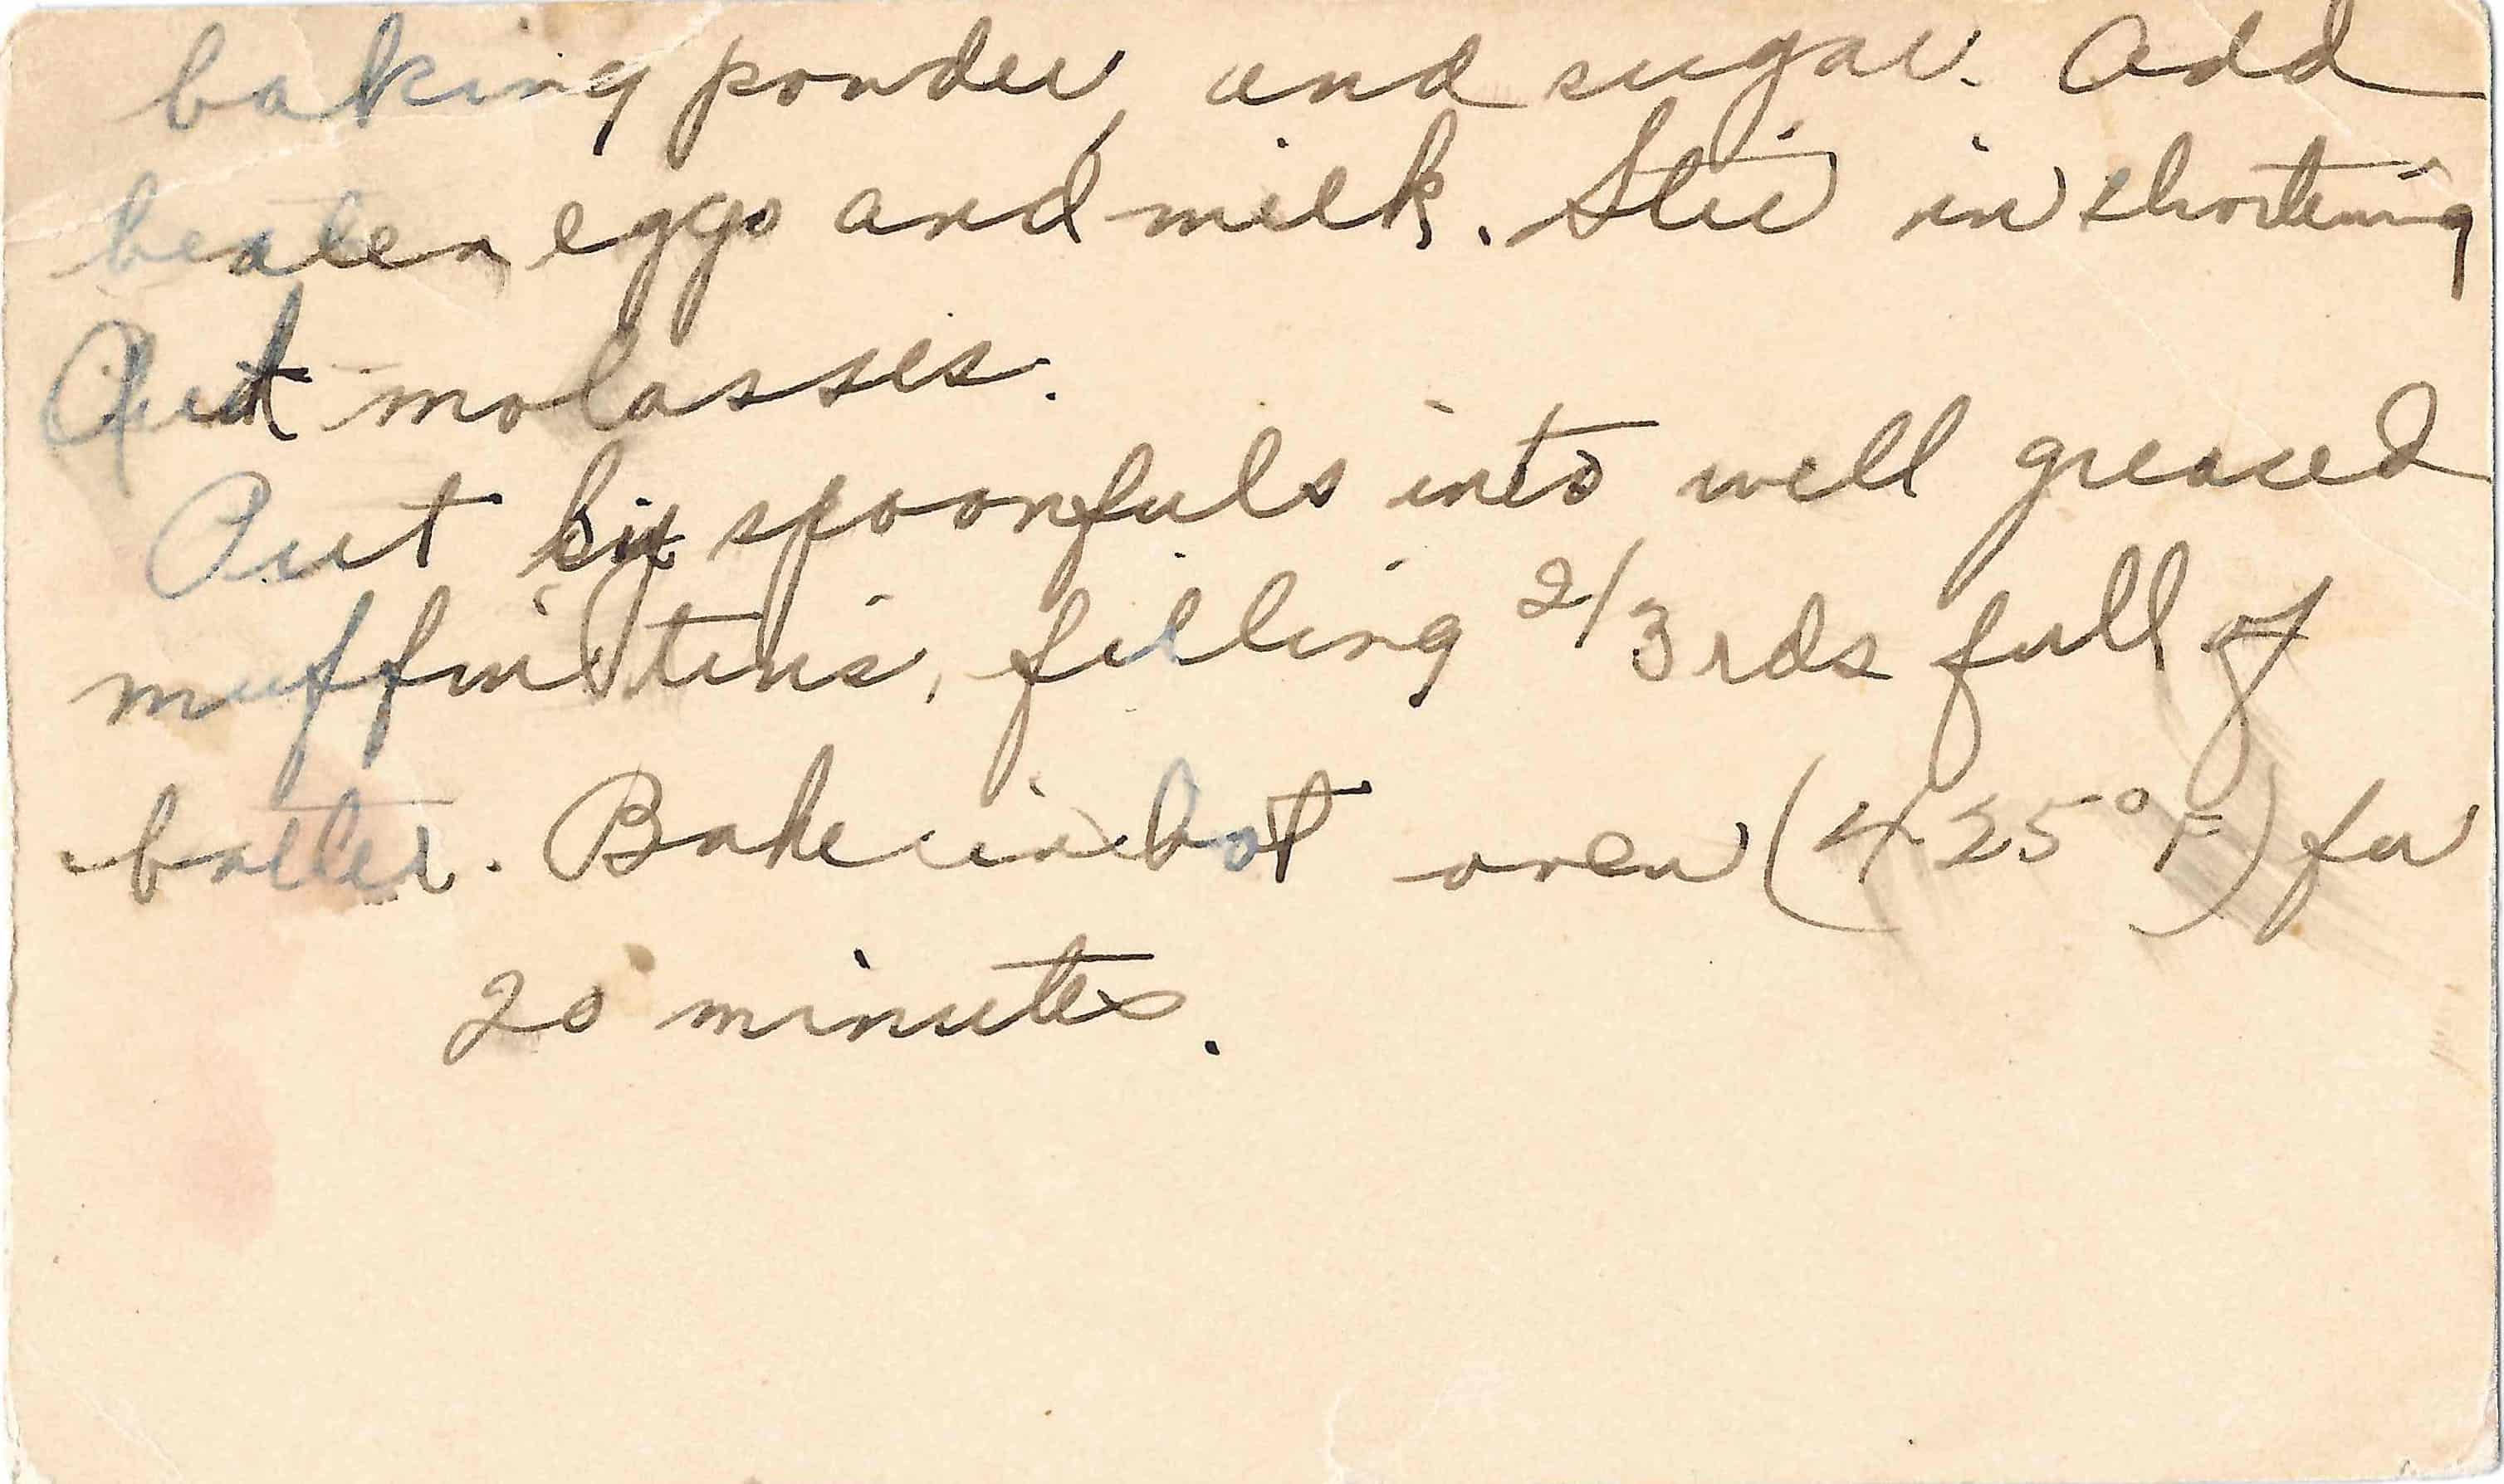 baking powder, and sugar. Add
beaten eggs and milk. Stir in shortening
And molasses.
Put by spoonfuls into well greased
muffin tins, filling 2/3rds full of
batter. Bake in hot oven (425°F) for
20 minutes.